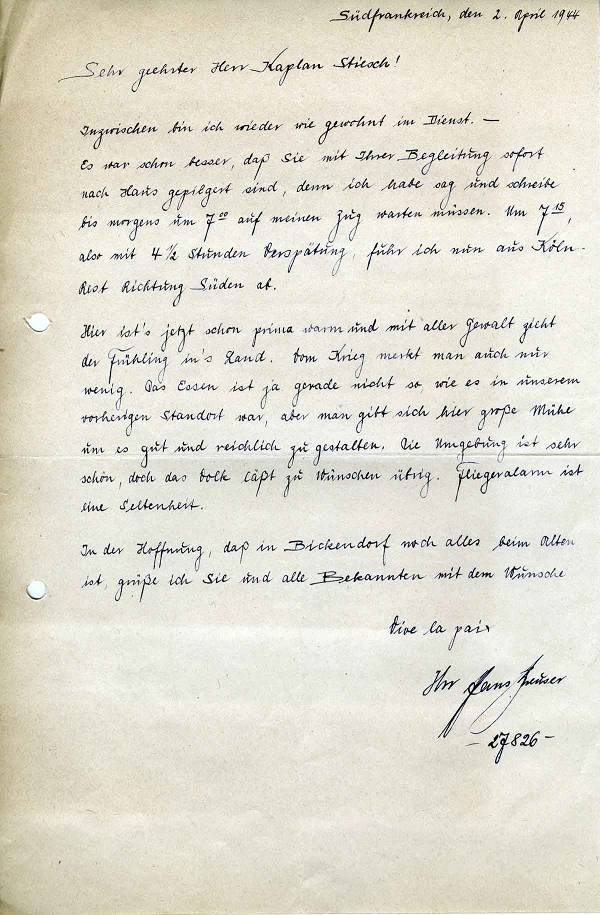 Südfrankreich, den 2. April 1944
Sehr geehrter Herr Kaplan Stiesch!
Inzwischen bin ich wieder wie gewohnt im Dienst. —
Es war schon besser, daß Sie mit Ihrer Begleitung sofort
nach Haus gepilgert sind, denn ich habe sag und schreibe
bis morgens um 7⁰⁰ auf meinen Zug warten müssen. Um 7¹⁵,
also mit 4 ½ Stunden Verspätung, fuhr ich nun aus Köln-
Rest Richtung Süden ab.
Hier ist's jetzt schon prima warm und mit aller Gewalt zieht
der Frühling in's Land. Vom Krieg merkt man auch nur
wenig. Das Essen ist ja gerade nicht so, wie es in unserem
vorherigen Standort war, aber man gibt sich hier große Mühe
um es gut und reichlich zu gestalten. Die Umgebung ist sehr
schön, doch das Volk läßt zu Wünschen übrig. Fliegeralarm ist
eine Seltenheit.
In der Hoffnung, daß in Bickendorf noch alles beim Alten
ist, grüße ich Sie und alle Bekannten mit dem Wunsche
Vive la paix
Ihr Hans
- 27826 -